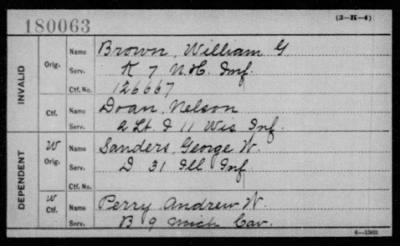 180063
(3-H-4)
INVALID
Orig. Name Brown, William G
Serv. K 7 N.H. Inf.
Ctf. No. 126667
Ctf. Name Doan, Nelson
Serv. 2 Lt. I 11 Wis Inf.
DEPENDENT
W Orig. Name Sanders, George W.
Serv. D 31 Ill Inf
W Ctf. Name Perry Andrew W.
Serv. B 9 Mich Cav.